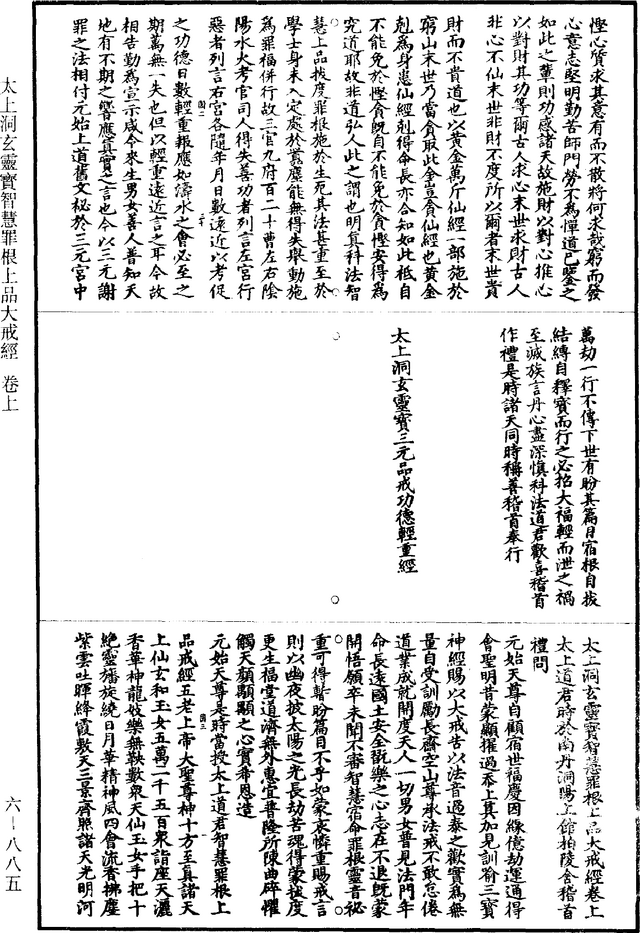 慳心質求其意有而不散將何求哉窮而發
心意志堅明勤苦師門勞不為憚道已鑒之
如此之輩則功感諸天故施財以對心推心
以對財其功等爾古人求心末世求財古人
非心不仙末世非財不度所以爾者末世貴
財而不貴道也以黃金萬斤仙經一部施於
窮山末世乃當貪取此金豈貪仙經也黃金
剋為身患仙經剋得命長亦合知如此秪自
不能免於慳貪既自不能免於貪慳安得為
究道耶故非道弘人此之謂也明真科法智
慧上品拔度罪根施於生死其法甚重至於
學士身未入定處於囂塵能無得失舉動施
為罪福併行故三官九府百二十曹左右陰
陽水火考官司人得失善功者列言左宮行
惡者列言右宮各隨年月日數遠近以考促
之功德日數輕重報應如濤水之會必至之
期萬無一失也但以輕重遠近言之耳今故
相告勤為宣示咸令來生男女善人普知天
地有不期之響應真實之言也今以三元謝
罪之法相付元始上道舊文秘於三元宮中
萬劫一行不傳下世有盼其篇目宿根自拔
結縛自釋寶而行之必招大福輕而泄之禍
至滅族言丹心盡深慎科法道君歡喜稽首
作禮是時諸天同時稱善稽首奉行
太上洞玄靈寶三元品戒功德輕重經
太上洞玄靈寶智慧罪根上品大戒經卷上
太上道君時於南丹洞陽上館柏陵舍稽首
禮問
元始天尊自顧宿世福慶因緣億劫運通得
會聖明昔蒙顯擢過忝上真加見訓喻三寶
神經賜以大戒告以法音過泰之歡實為無
量自受訓勵長齋空山尊承法戒不敢怠倦
道業成就開度天人一切男女普見法門年
命長遠國土安全翫樂之心志在不退既蒙
開悟願卒未聞不審智慧宿命罪根靈音秘
重可得暫盼篇目不乎如蒙哀憐重賜戒言
則以幽夜披太陽之光長劫苦魂得蒙拔度
更生福堂道濟無外惠宣普隆所陳曲碎懼
觸天顏顒顒之心實希恩造
元始天尊是時當授太上道君智慧罪根上
品戒經五老上帝大聖尊神十方至真諸天
上仙玄和玉女五萬一千五百眾詣座天灑
香華神龍妓樂無鞅數眾天仙玉女手把十
絕靈旛旋繞日月華精神風四會流香拂塵
紫雲吐暉絳霞敷天三景齊照諸天光明河
太上洞玄靈寶智慧罪根上品大戒經 卷上
六-八八五